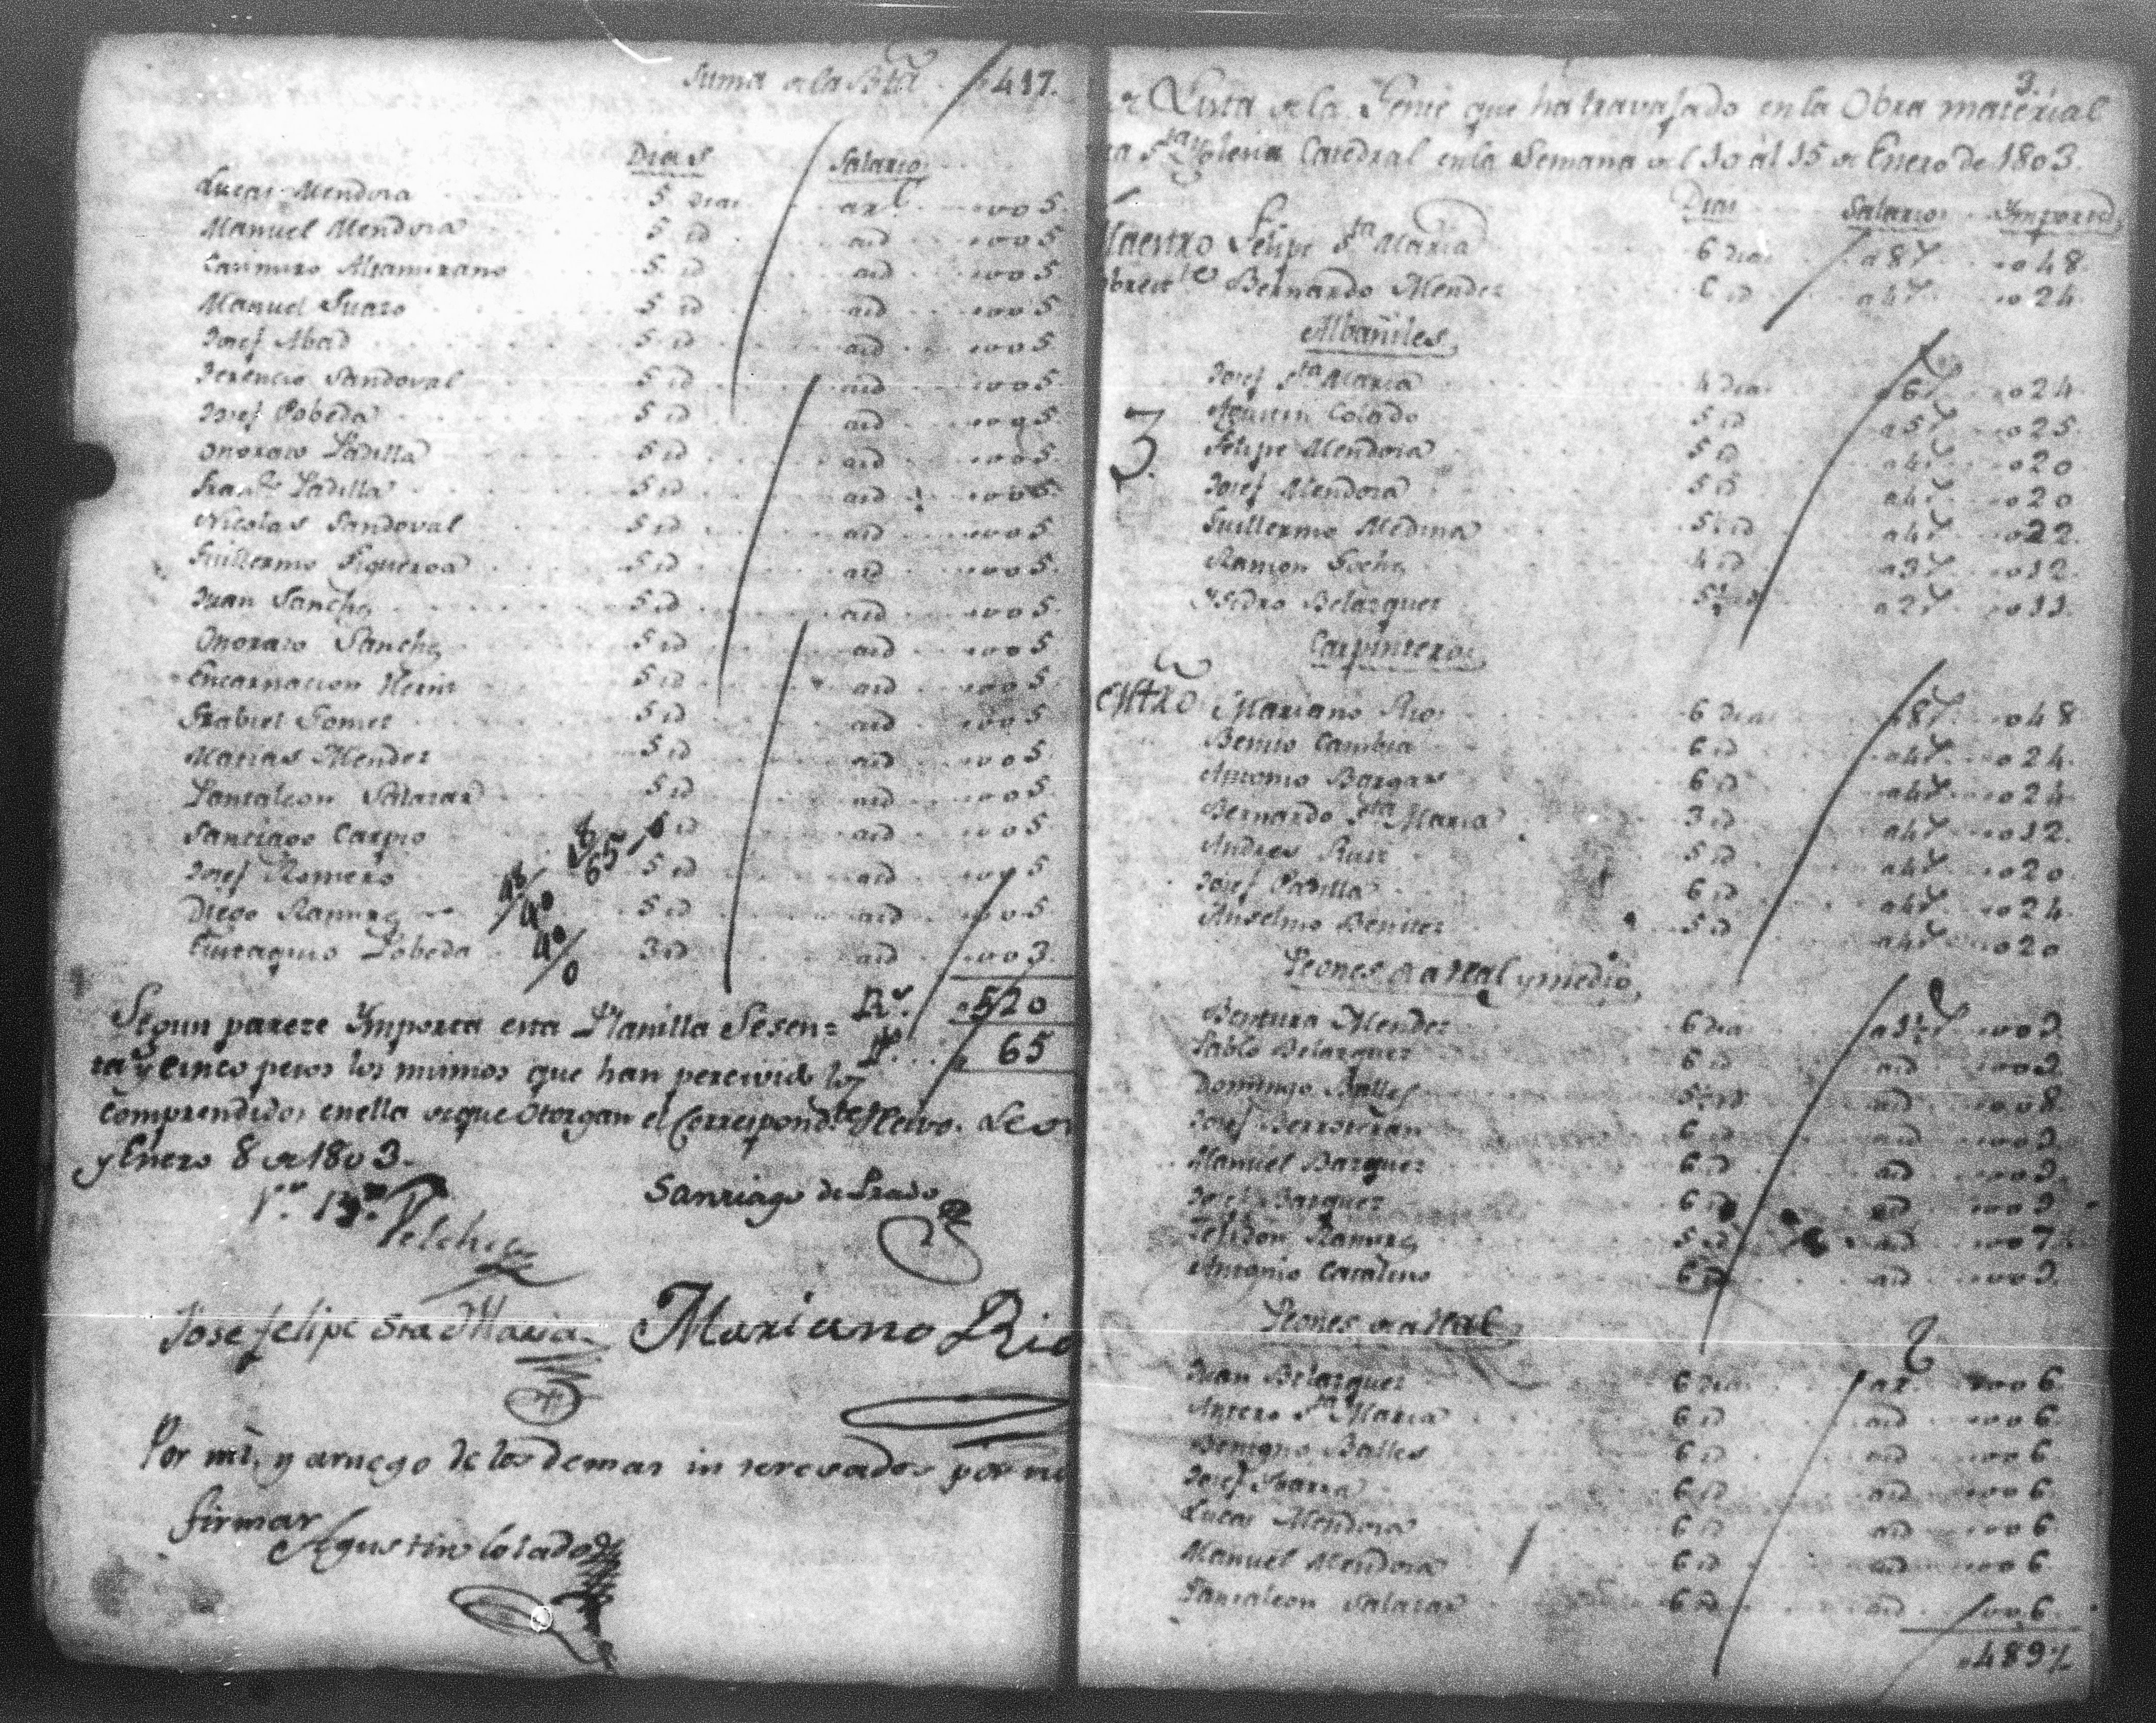 Suma de la Bta 417.
Dias Salario
Lucas Mendoza 5 dias ar l 005.
Manuel Mendoza 5 id aid 005.
Casimiro Altamirano 5 id aid 005.
Manuel Suaro 5 id aid 005.
Josef Abad 5 id aid 005.
Terencio Sandoval 5 id aid 005.
Josef Pobeda 5 id aid 005.
Onorato Padilla 5 id aid 005.
Franco Padilla 5 id aid 005.
Nicolas Sandoval 5 id aid 005.
Guillermo Figueroa 5 id aid 005.
Juan Sanches 5 id aid 005.
Onorato Sanches 5 id aid 005.
Encarnacion 5 id aid 005.
Grabiel Gomes 5 id aid 005.
Matias Mendez 5 id aid 005.
Pantaleon Salazar 5 id aid 005.
Santiago Carpio 5 id aid 005.
Josef Romero 5 id aid 005.
Diego Ramires 5 id aid 005.
Eustaquio Pobeda 3 id aid 003.
Rs. 520
Ps. 65
Segun pareze Importa esta Planilla Sesen=
ta y cinco pesos los mismos que han percivido los
comprendidos en ella de que Otorgan el Correspondte Recivo. Leon
y Enero 8 de 1803.
Vo. Bo. Vilches
Santiago de Prado
Jose felipe Sta Maria
Mariano Rio
Por mi, y a ruego de los demas interesados por no
firmar
Agustin Colado
3.
Lista de la Gente que ha travajado en la Obra material
Sta Yglesia Catedral en la Semana del 10 al 15 de Enero de 1803.
Dias Salarios Importa
Maestro Felipe Sta Maria 6 dias a 8 r 048.
Bernardo Mendez 6 id a 4 r 024.
Albañiles
Josef Sta Maria 4 dias a 6 r 024.
Agustin Colado 5 id a 5 r 025.
Felipe Mendoza 5 id a 4 r 020
3
Josef Mendoza 5 id a 4 r 020
Guillermo Medina 5½ id a 4 r 022.
Ramon 4 id a 3 r 012.
Ysidro Belazquez 5½ id a 2 r 011.
Carpinteros
Mtro Mariano Rio 6 dias a 8 r 048
Benito Cambia 6 id a 4 r 024.
Antonio Bargas 6 id a 4 r 024
Bernardo Sta Maria 3 id a 4 r 012.
Andres Ruiz 5 id a 4 r 020.
Josef Padilla 6 id a 4 r 024
Anselmo Benitez 5 id a 4 r 020
Peones de a Real y medio
Bentura Mendez 6 dias a 1½ r 009
Pablo Belazquez 6 id aid 009
Domingo Balles 5½ id aid 008.
Josef Berroteran 6 id aid 009.
Manuel Bazquez 6 id aid 009.
Josef Bazquez 6 id aid 009
Ramires 5 id aid 007
Antonio Catalino 6 id aid 009.
Peones de a Real
Juan Belazquez 6 dias ar 006
Antero Sta Maria 6 id aid 006.
Benigno Balles 6 id aid 006.
Josef Ybarra 6 id aid 006.
Lucas Mendoza 6 id aid 006.
Manuel Mendoza 6 id aid 006.
Pantaleon Salazar 6 id aid 006.
489½